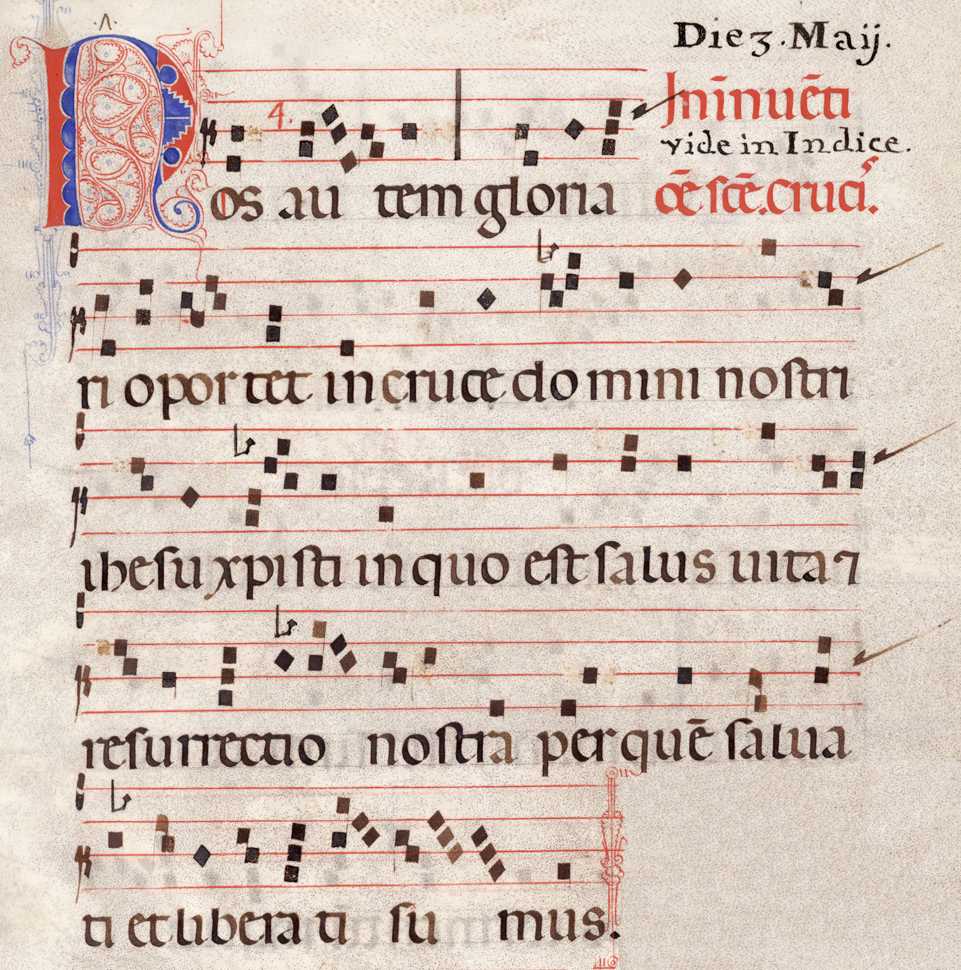 Die 3. Maij.
In inuēti
vide in Indice.
oē scē. Cruci.
4.
Nos au tem gloria
ri opor tet in cruce do mini nostri
ihesu xpisti in quo est salus uita ⁊
resurrectio nostra per quē salua
ti et libera ti su mus.